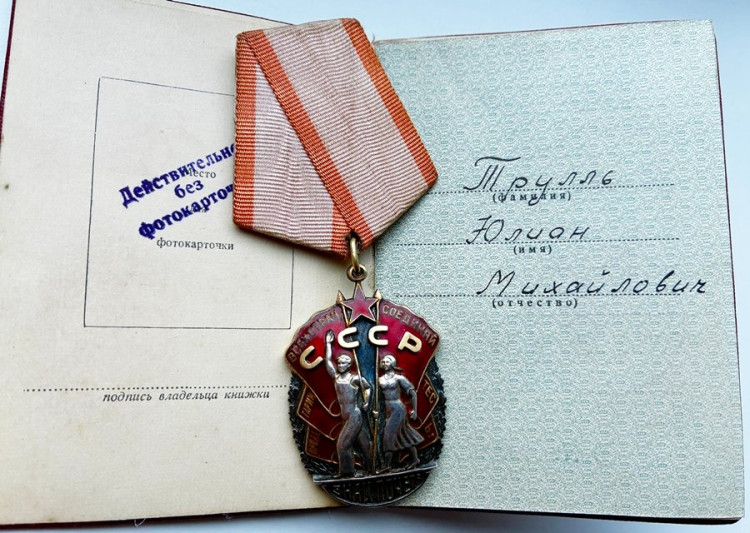 Действительно
без
фотокарточки
место
фотокарточки
подпись владельца книжки
СССР
Трулль
(фамилия)
Юлиан
(имя)
Михайлович
(отчество)